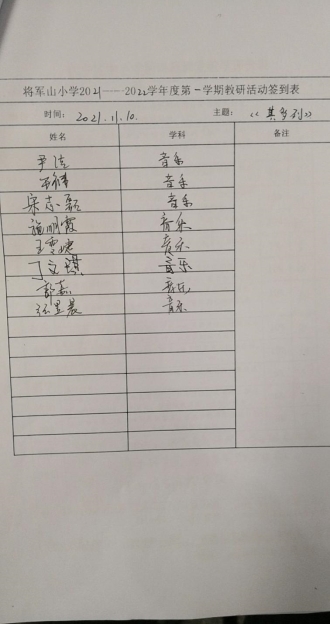 将军山小学2021——2022学年度第一学期教研活动签到表
时间: 2021.11.10. 主题: 《其多列》
姓名 学科 备注
尹洁 音乐
音乐
宋志磊 音乐
施明霞 音乐
王雪婕 音乐
丁文琪 音乐
彭嘉 音乐
张昱晨 音乐